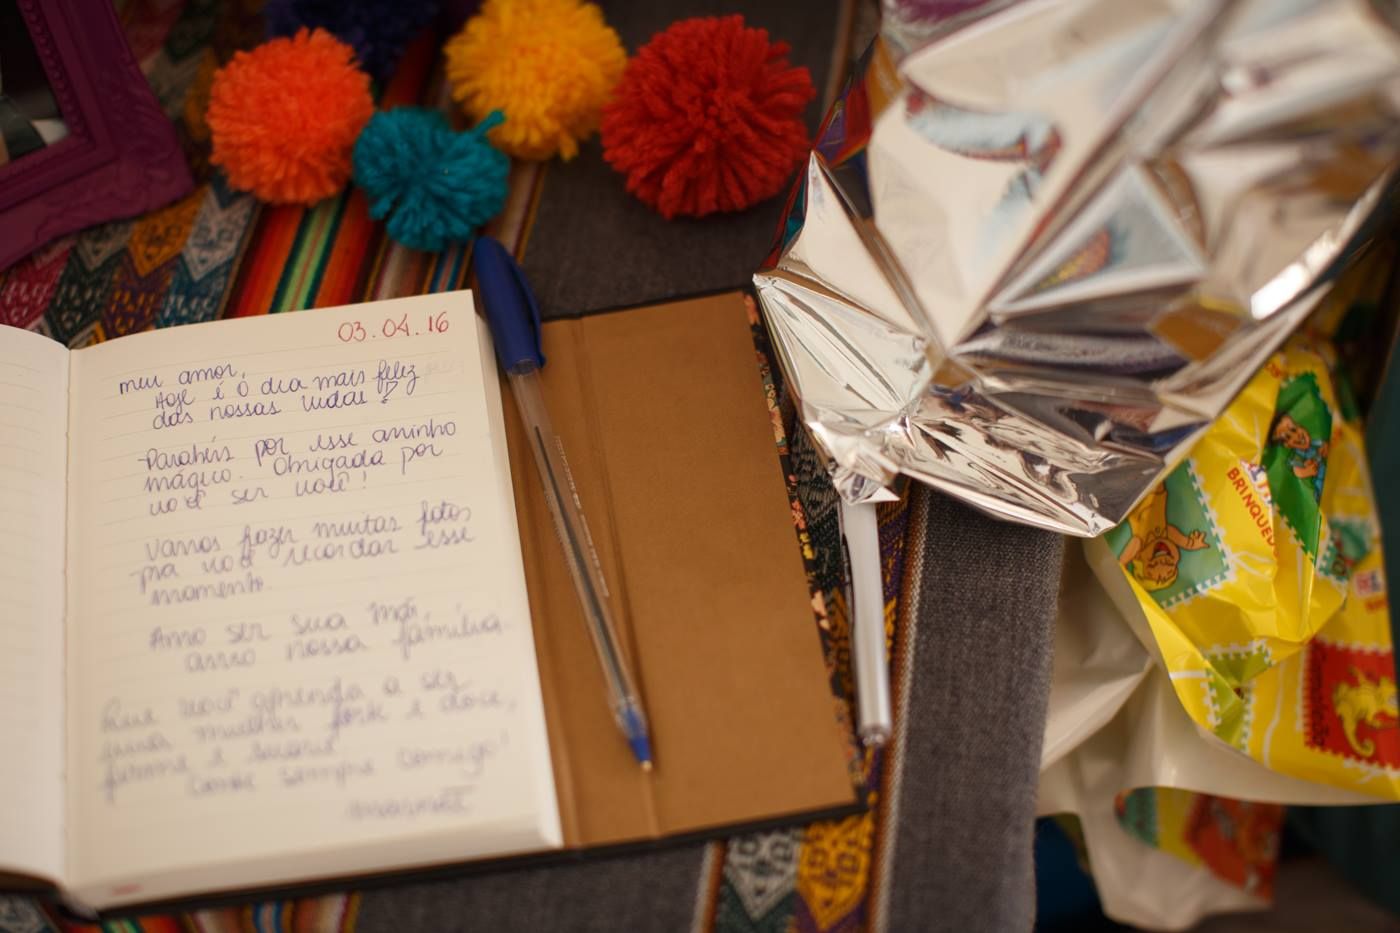 03.04.16
meu amor,
Hoje é o dia mais feliz
das nossas vidas!
Parabéns por esse aninho
mágico. Obrigada por
você ser você!
Vamos fazer muitas fotos
pra você recordar esse
momento.
Amo ser sua mãe,
amo nossa família.
Que você aprenda a ser
uma mulher forte e doce,
firme e suave.
Conte sempre comigo!
BRINQUE